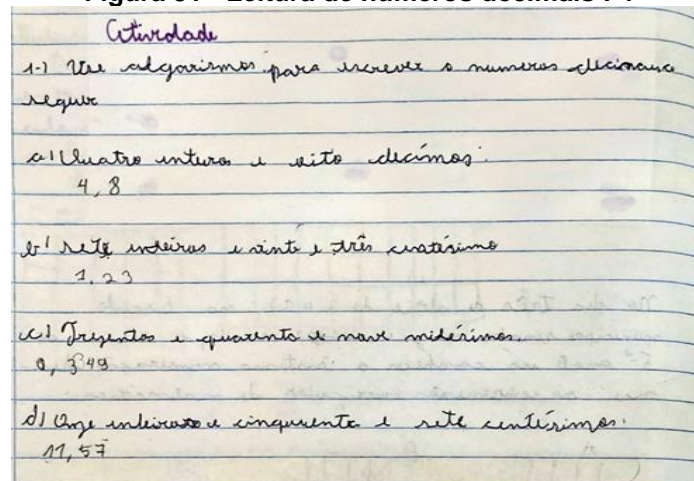 Figura 31 - Leitura de números decimais I 1
Atividade
1-) Use algarismos para escrever o numeros decimais a
seguir
a) Quatro inteiros e oito decímos.
4,8
b) Sete inteiros e vinte e três centésimo
1,23
c) Trezentos e quarenta e nove milérimos.
0,349
d) Onze inteiros e cinquenta e sete centésimos.
11,57